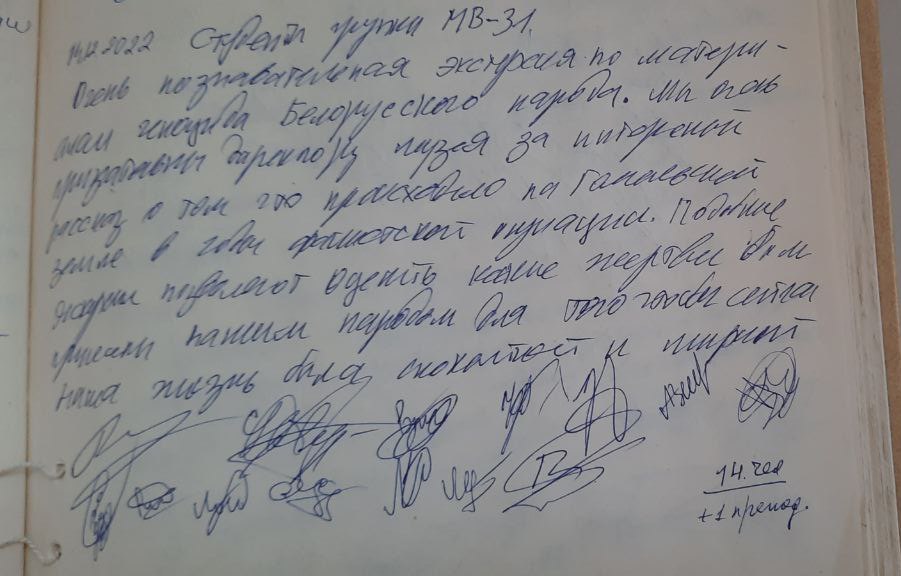 14.12.2022 Студенты группы МВ-31.
Очень познавательная экскурсия по матери-
алам геноцида Белорусского народа. Мы очень
признательны директору музея за интересный
рассказ о том что происходило на Гомельской
земле в годы фашистской оккупации. Подобные
экскурсии позволяют оценить какие жертвы были
принесены нашим народом для того чтобы сейчас
наша жизнь была спокойной и мирной
14 чел
+1 препод.